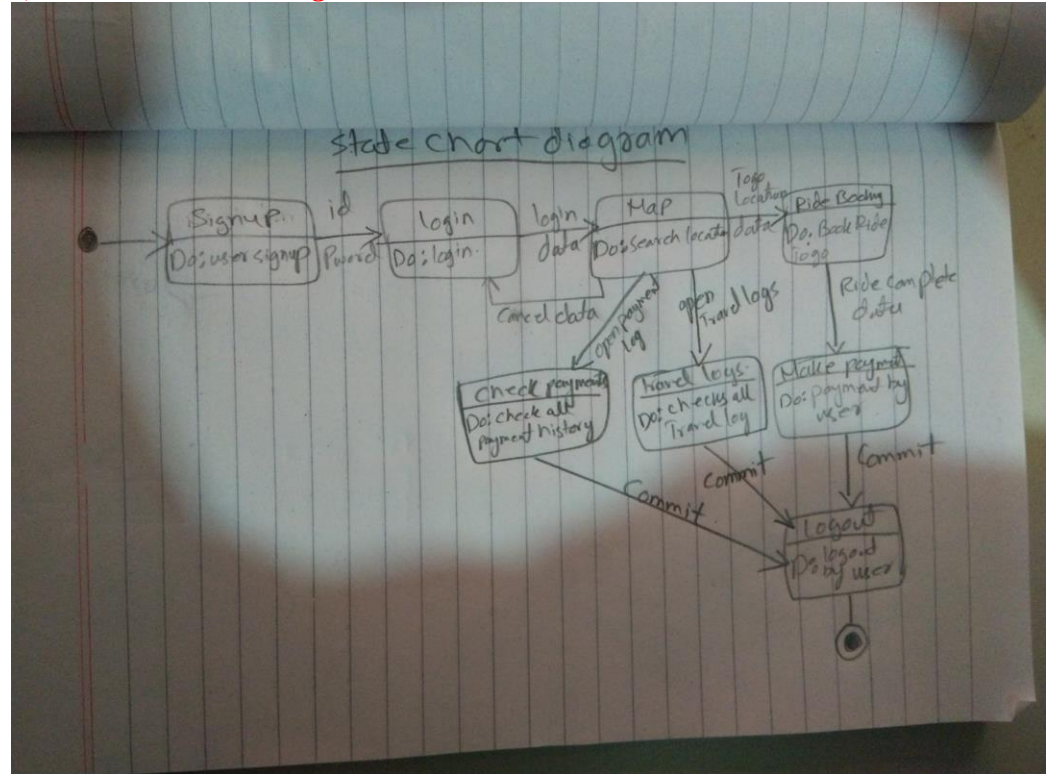 State chart diagram
Signup
Do: user signup
id
Pword
login
Do: login.
login
data
Map
Do: search locate
Togo
Location
data
Ride Booking
Do: Book Ride
togo
Cancel data
open payment
log
open
Travel logs
Ride complete
data
Check payments
Do: check all
payment history
travel logs.
Do: checks all
Travel log
Make payment
Do: payment by
user
Commit
Commit
Commit
Logout
Do: logout
by user